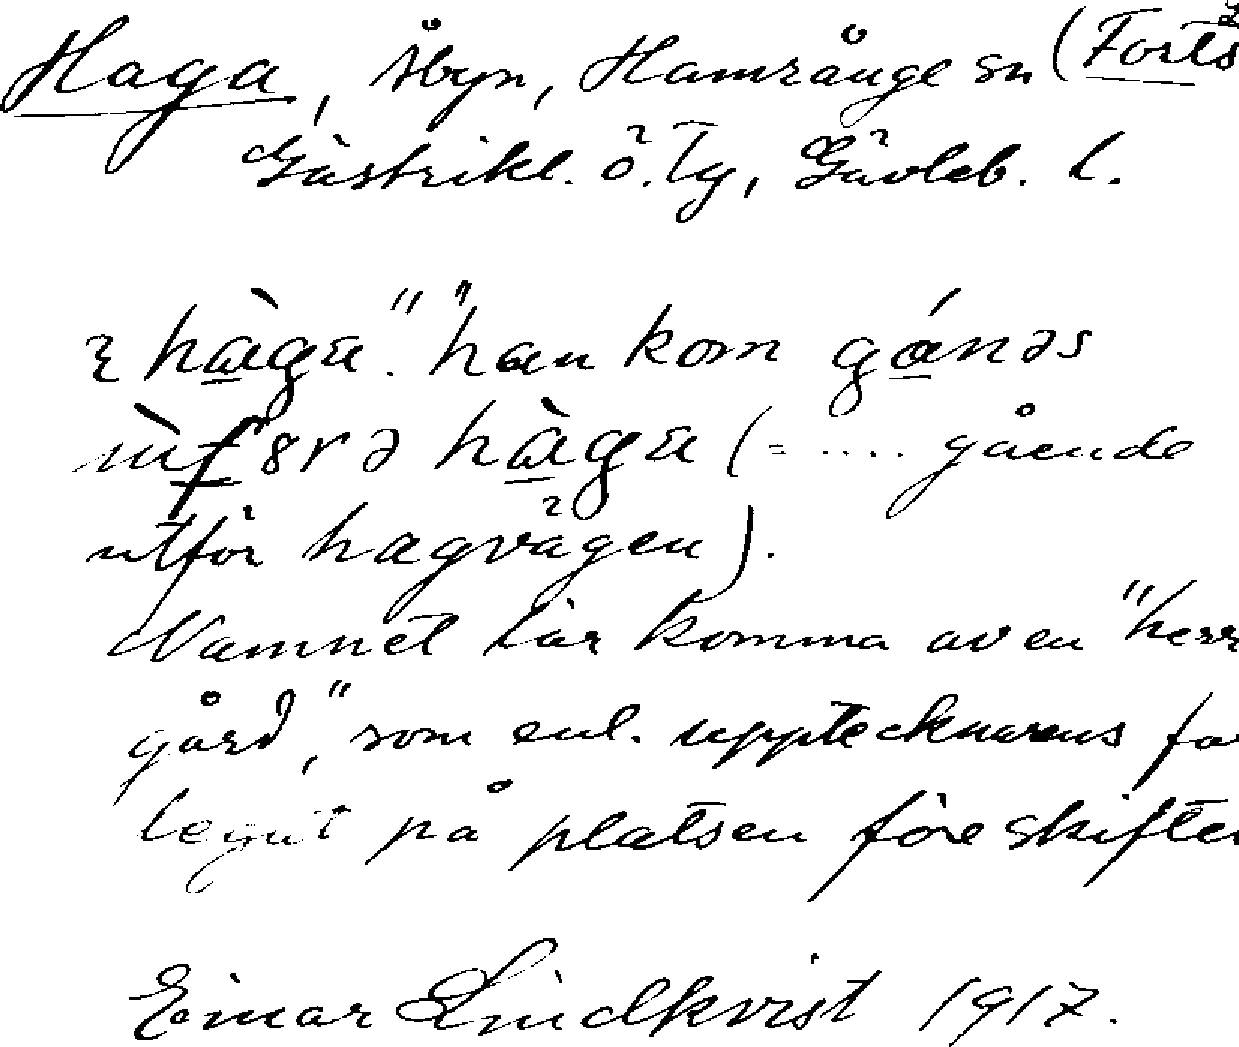 Haga, Åbyn, Hamrånge sn (Forts
Gästrikl. ö. Tg, Gävleb. l.
hàga". "han kom gánəs
hàga (= .... gående
utför hagvägen).
Namnet lär komma av en "herr
gård", som enl. upptecknarens
legat på platsen före skiftet
Einar Lindkvist 1917.